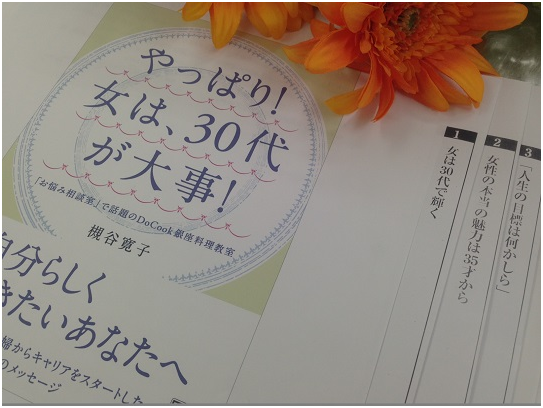 やっぱり!
女は、30代
が大事!
「お悩み相談室」で話題のDoCook銀座料理教室
槻谷寛子
自分らしく
きたいあなたへ
婦からキャリアをスタートした
のメッセージ
3 「人生の目標は何かしら」
2 女性の本当の魅力は35才から
1 女は30代で輝く